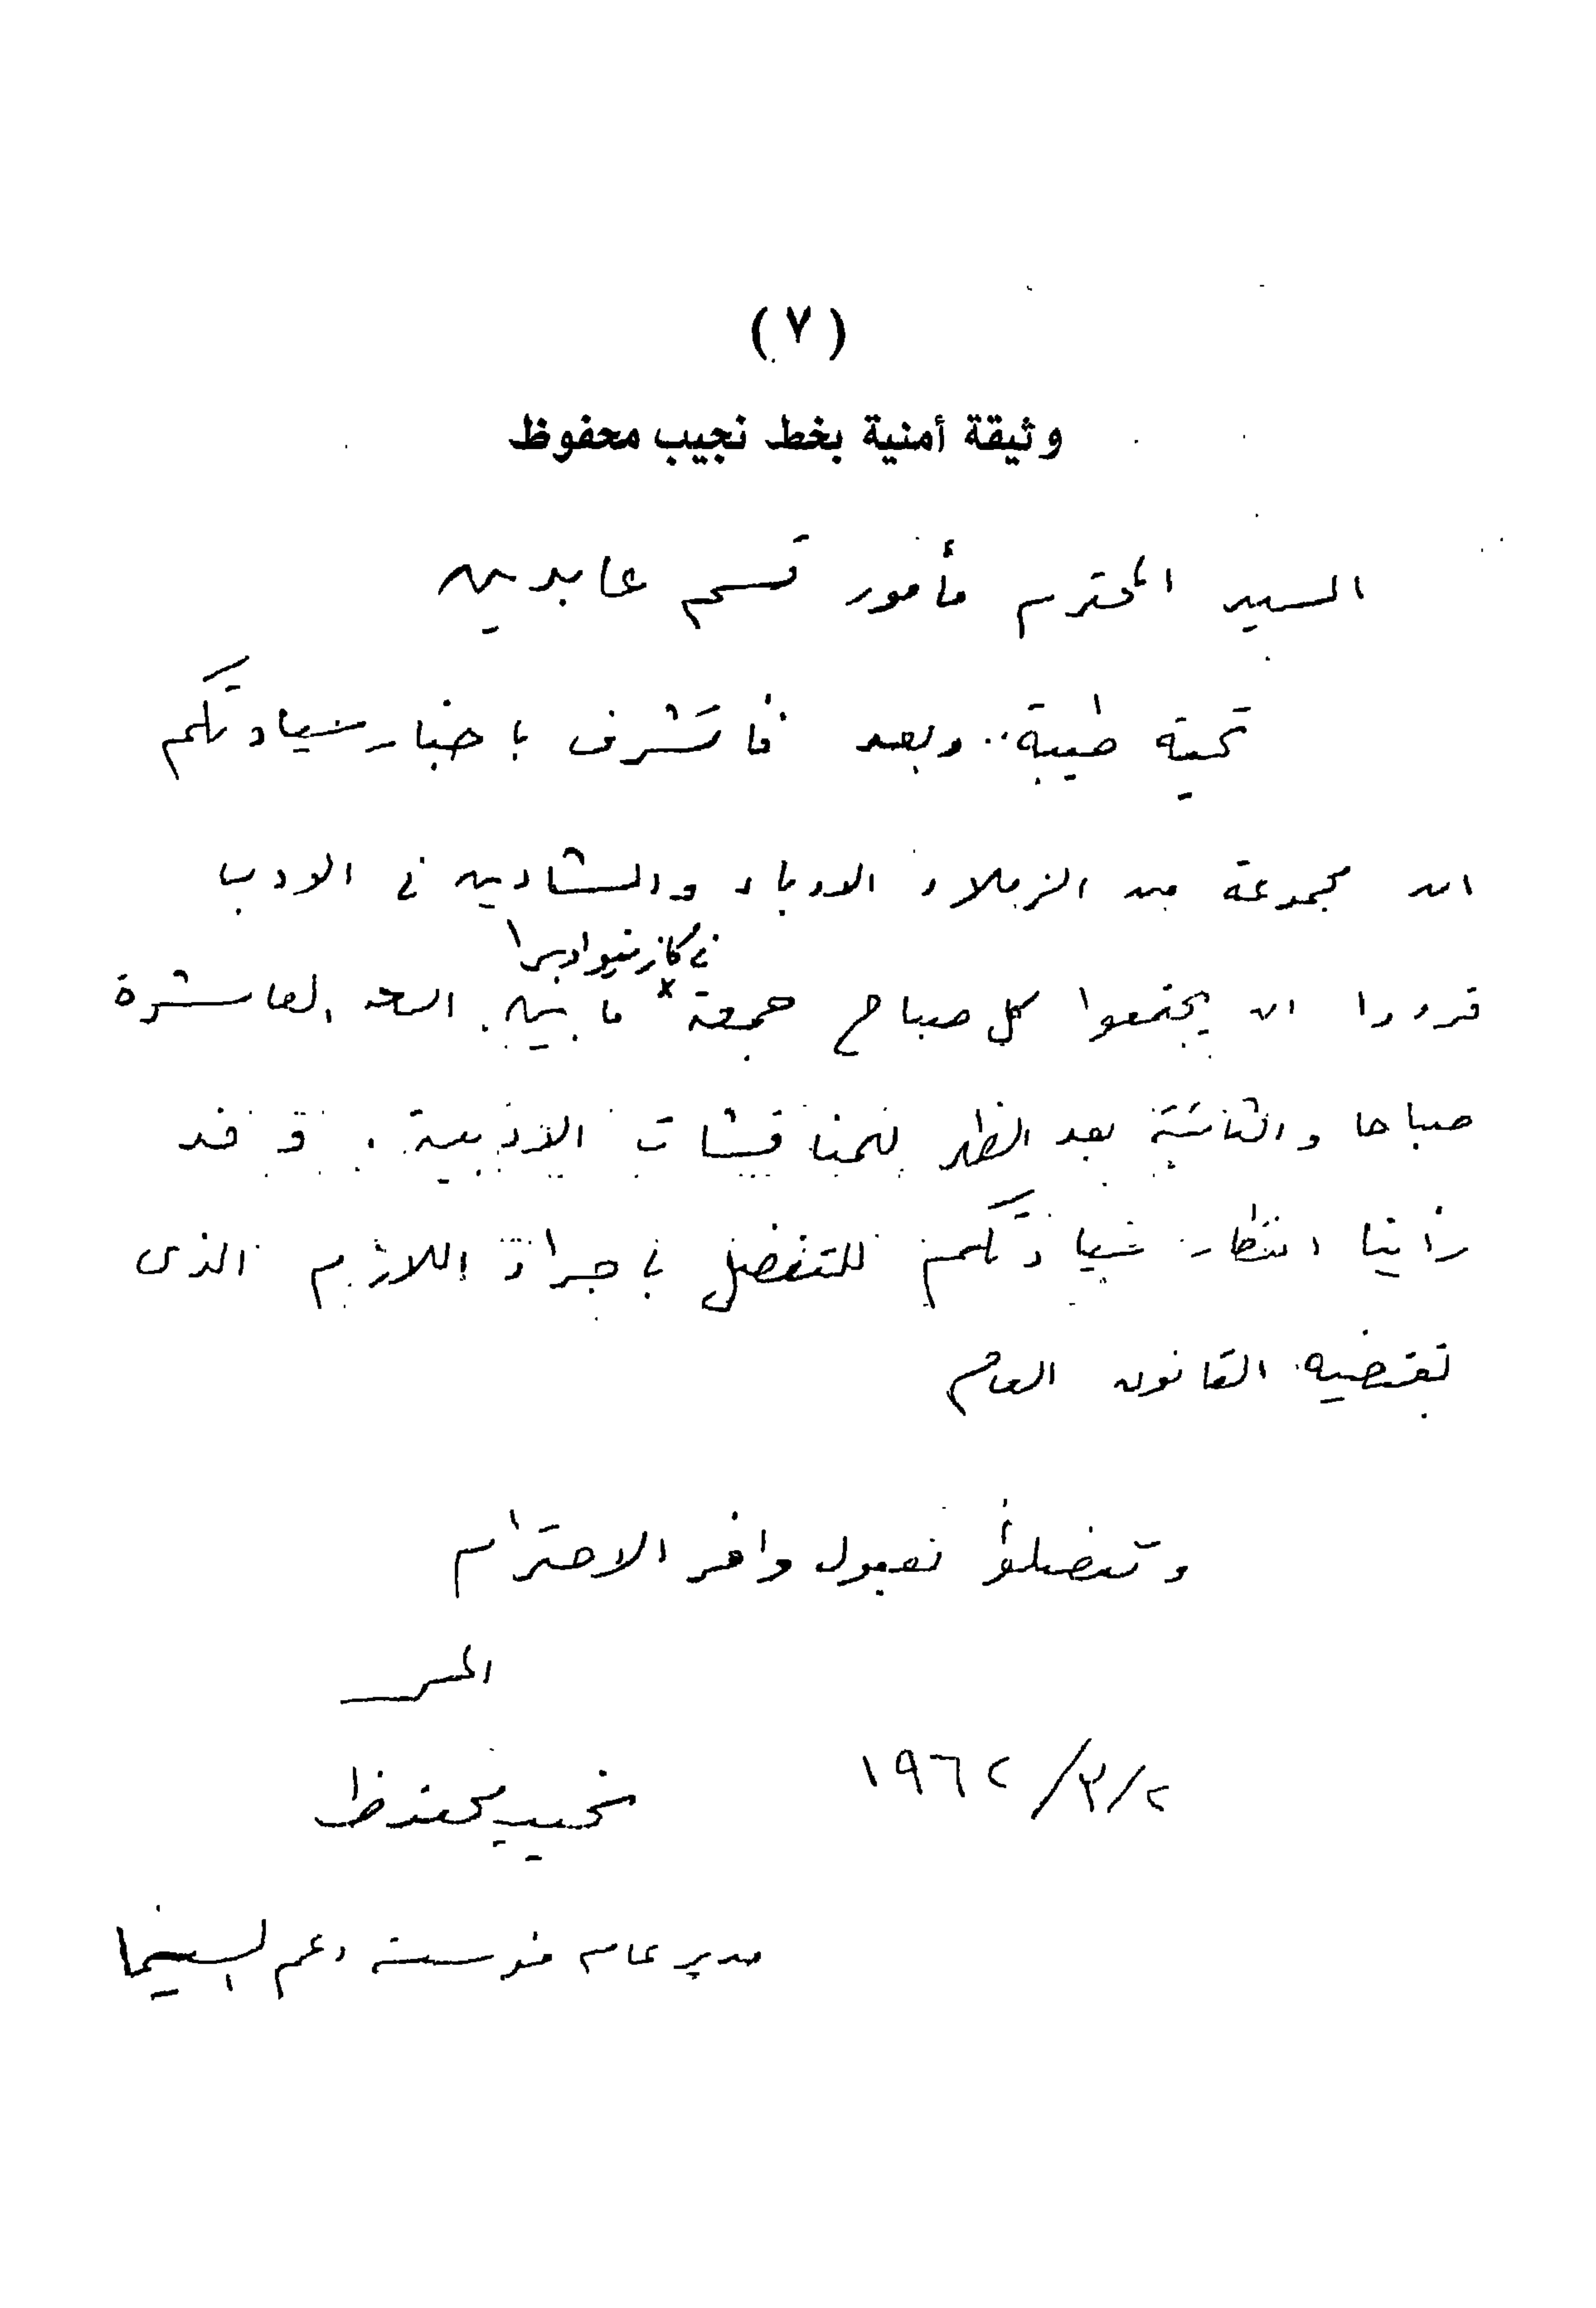 (٧)
وثيقة أمنية بخط نجيب محفوظ
السيد المحترم مأمور قسم عابدين
تحية طيبة .. وبعد فاتشرف باخبار سيادتكم
ان مجموعة من الزملاء الادباء والشادين فى الادب
فى كازينو اوبرا
قرروا ان يجتمعوا كل صباح جمعة × ما بين الساعة العاشرة
صباحا والثانية بعد الظهر للمناقشات الادبية . وقد
رأينا اخطار سيادتكم للتفضل باجراء اللازم الذى
يقتضيه القانون العام
وتفضلوا بقبول وافر الاحترام
المحرر
٢/٣/١٩٦٢
نجيب محفوظ
مدير عام مؤسسة دعم السينما